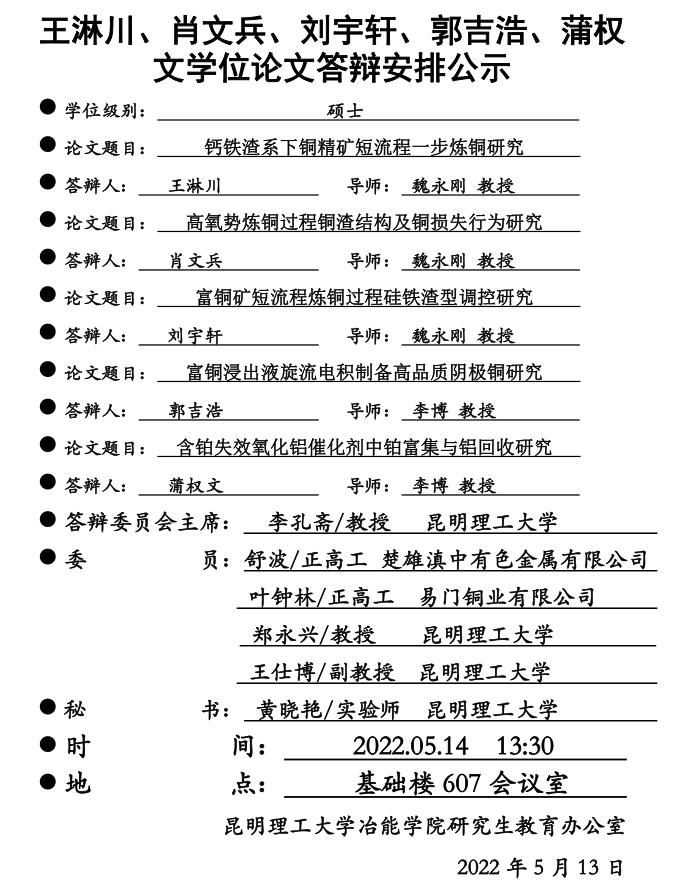 王淋川、肖文兵、刘宇轩、郭吉浩、蒲权
文学位论文答辩安排公示
● 学位级别： 硕士
● 论文题目： 钙铁渣系下铜精矿短流程一步炼铜研究
● 答辩人： 王淋川 导师： 魏永刚 教授
● 论文题目： 高氧势炼铜过程铜渣结构及铜损失行为研究
● 答辩人： 肖文兵 导师： 魏永刚 教授
● 论文题目： 富铜矿短流程炼铜过程硅铁渣型调控研究
● 答辩人： 刘宇轩 导师： 魏永刚 教授
● 论文题目： 富铜浸出液旋流电积制备高品质阴极铜研究
● 答辩人： 郭吉浩 导师： 李博 教授
● 论文题目： 含铂失效氧化铝催化剂中铂富集与铝回收研究
● 答辩人： 蒲权文 导师： 李博 教授
● 答辩委员会主席： 李孔斋/教授 昆明理工大学
● 委 员： 舒波/正高工 楚雄滇中有色金属有限公司
叶钟林/正高工 易门铜业有限公司
郑永兴/教授 昆明理工大学
王仕博/副教授 昆明理工大学
● 秘 书： 黄晓艳/实验师 昆明理工大学
● 时 间： 2022.05.14 13:30
● 地 点： 基础楼 607 会议室
昆明理工大学冶能学院研究生教育办公室
2022 年 5 月 13 日